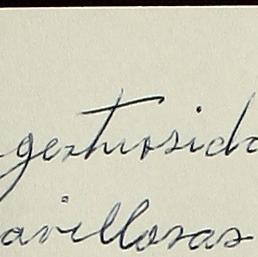 gestuosida
avillosas